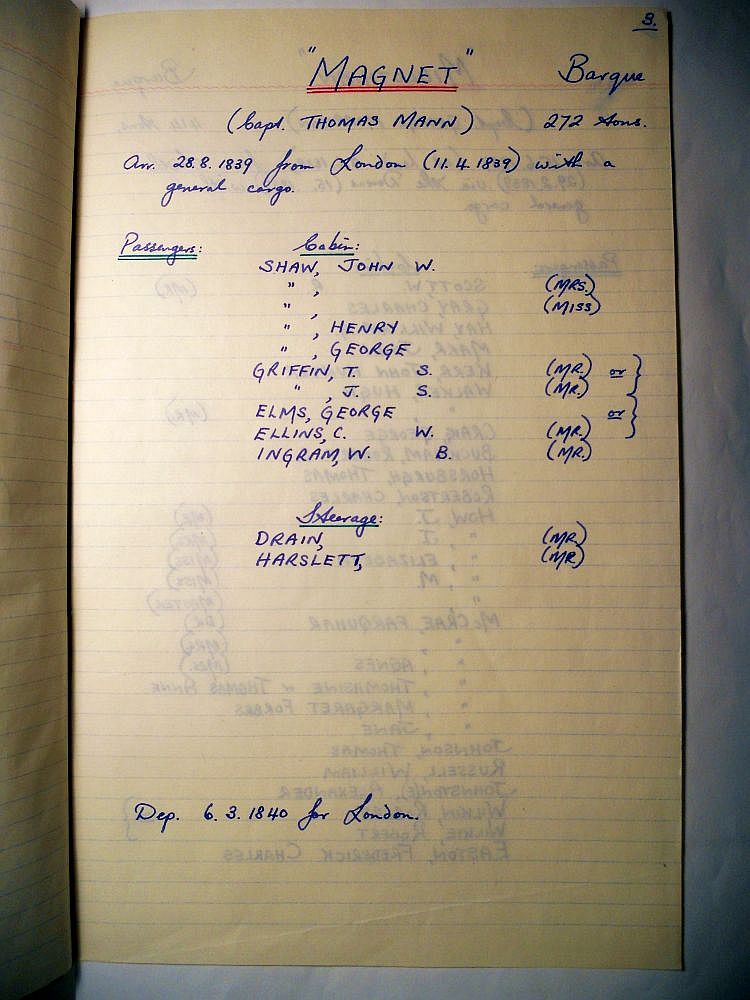 8.
"MAGNET" Barque
(Capt. THOMAS MANN) 272 tons.
Arr. 28.8.1839 from London (11.4.1839) with a
general cargo.
Passengers: Cabin:
SHAW, JOHN W.
" , (MRS.)
" , (MISS)
" , HENRY
" , GEORGE
GRIFFIN, T. S. (MR.) or }
" , J. S. (MR.)
ELMS, GEORGE or }
ELLINS, C. W. (MR.)
INGRAM, W. B. (MR.)
Steerage:
DRAIN, (MR.)
HARSLETT, (MR)
Dep. 6.3.1840 for London.